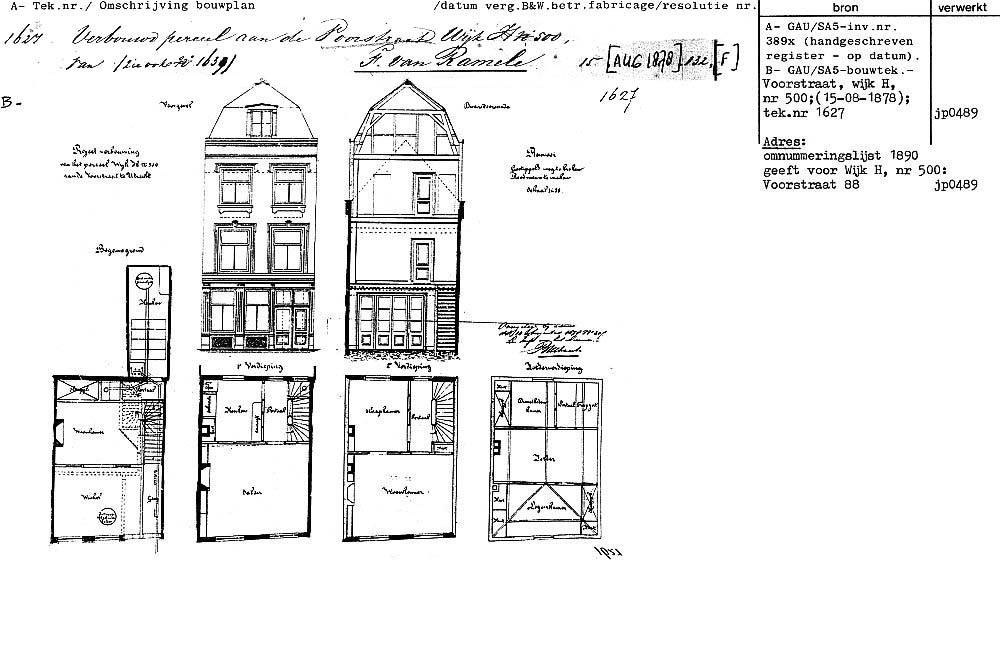 A- Tek.nr./ Omschrijving bouwplan /datum verg.B&W.betr.fabricage/resolutie nr.
bron verwerkt
1627 Verbouwd perceel aan de Voorstraat Wijk H no 500,
van (zie ook No 1639) F. van Ramele 15 [AUG 1878] 132, [F]
1627
A- GAU/SA5-inv.nr.
389x (handgeschreven
register - op datum).
B- GAU/SA5-bouwtek.-
Voorstraat, wijk H,
nr 500;(15-08-1878);
tek.nr 1627 jp0489
Adres:
omnummeringslijst 1890
geeft voor Wijk H, nr 500:
Voorstraat 88 jp0489
B-
Voorgevel
Doorsnede
Project verbouwing
van het perceel Wijk H No 500
aan de Voorstraat te Utrecht
Schaal 1 à 50.
Begane grond
Keuken
1e Verdieping
2e Verdieping
Zolderverdieping
Portaal
Woonkamer
Winkel
Gang
Keuken
Portaal
Salon
Slaapkamer
Portaal
Woonkamer
Kast
Dienstboden
kamer
Zolder
Logeerkamer
Kast
Kast